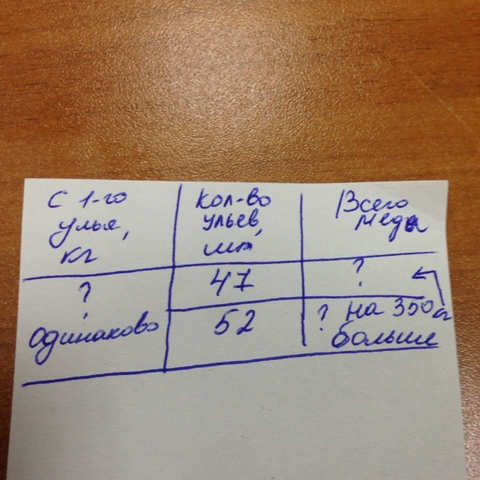 С 1-го
улья,
кг
Кол-во
ульев,
шт
Всего
меда
?
47
?
одинаково
52
? на 350
больше